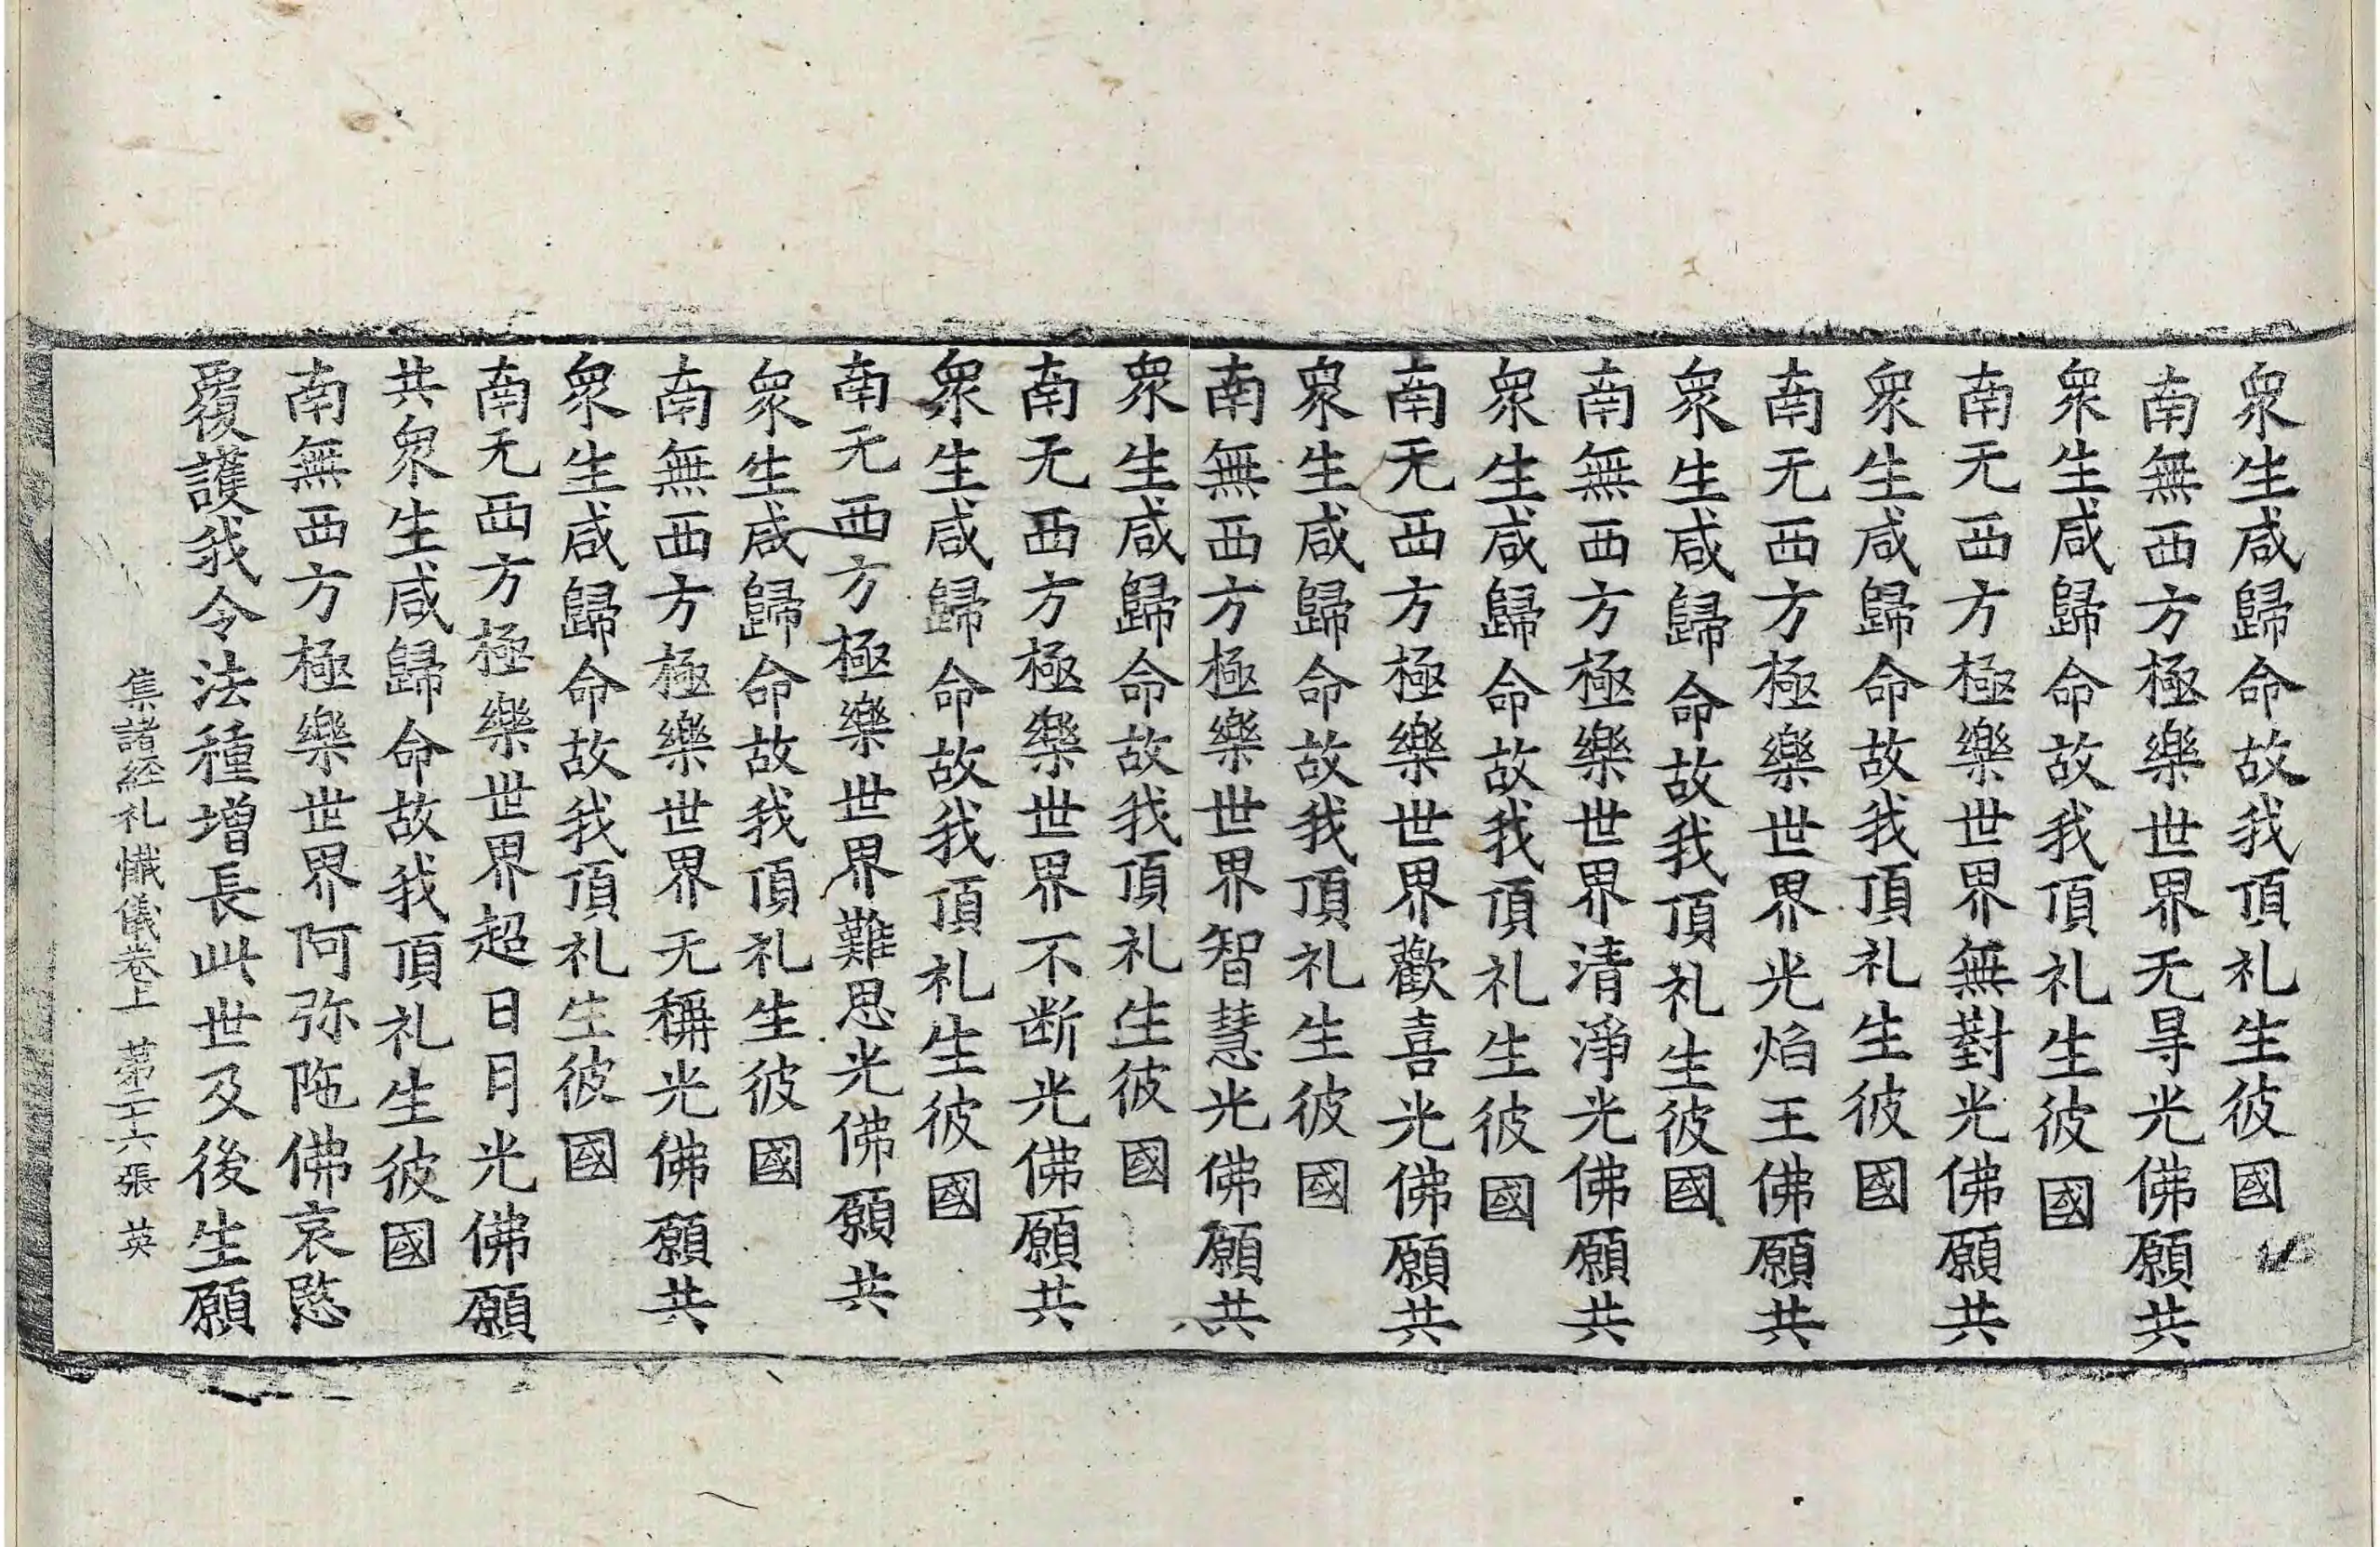 衆生咸歸命故我頂礼生彼國
南無西方極樂世界无㝵光佛願共
衆生咸歸命故我頂礼生彼國
南无西方極樂世界無對光佛願共
衆生咸歸命故我頂礼生彼國
南无西方極樂世界光焰王佛願共
衆生咸歸命故我頂礼生彼國
南無西方極樂世界清淨光佛願共
衆生咸歸命故我頂礼生彼國
南无西方極樂世界歡喜光佛願共
衆生咸歸命故我頂礼生彼國
南無西方極樂世界智慧光佛願共
衆生咸歸命故我頂礼生彼國
南无西方極樂世界不断光佛願共
衆生咸歸命故我頂礼生彼國
南无西方極樂世界難思光佛願共
衆生咸歸命故我頂礼生彼國
南無西方極樂世界无稱光佛願共
衆生咸歸命故我頂礼生彼國
南无西方極樂世界超日月光佛願
共衆生咸歸命故我頂礼生彼國
南無西方極樂世界阿弥陁佛哀愍
覆護我令法種增長此世及後生願
集諸経礼懺儀卷上 第二十六張 英